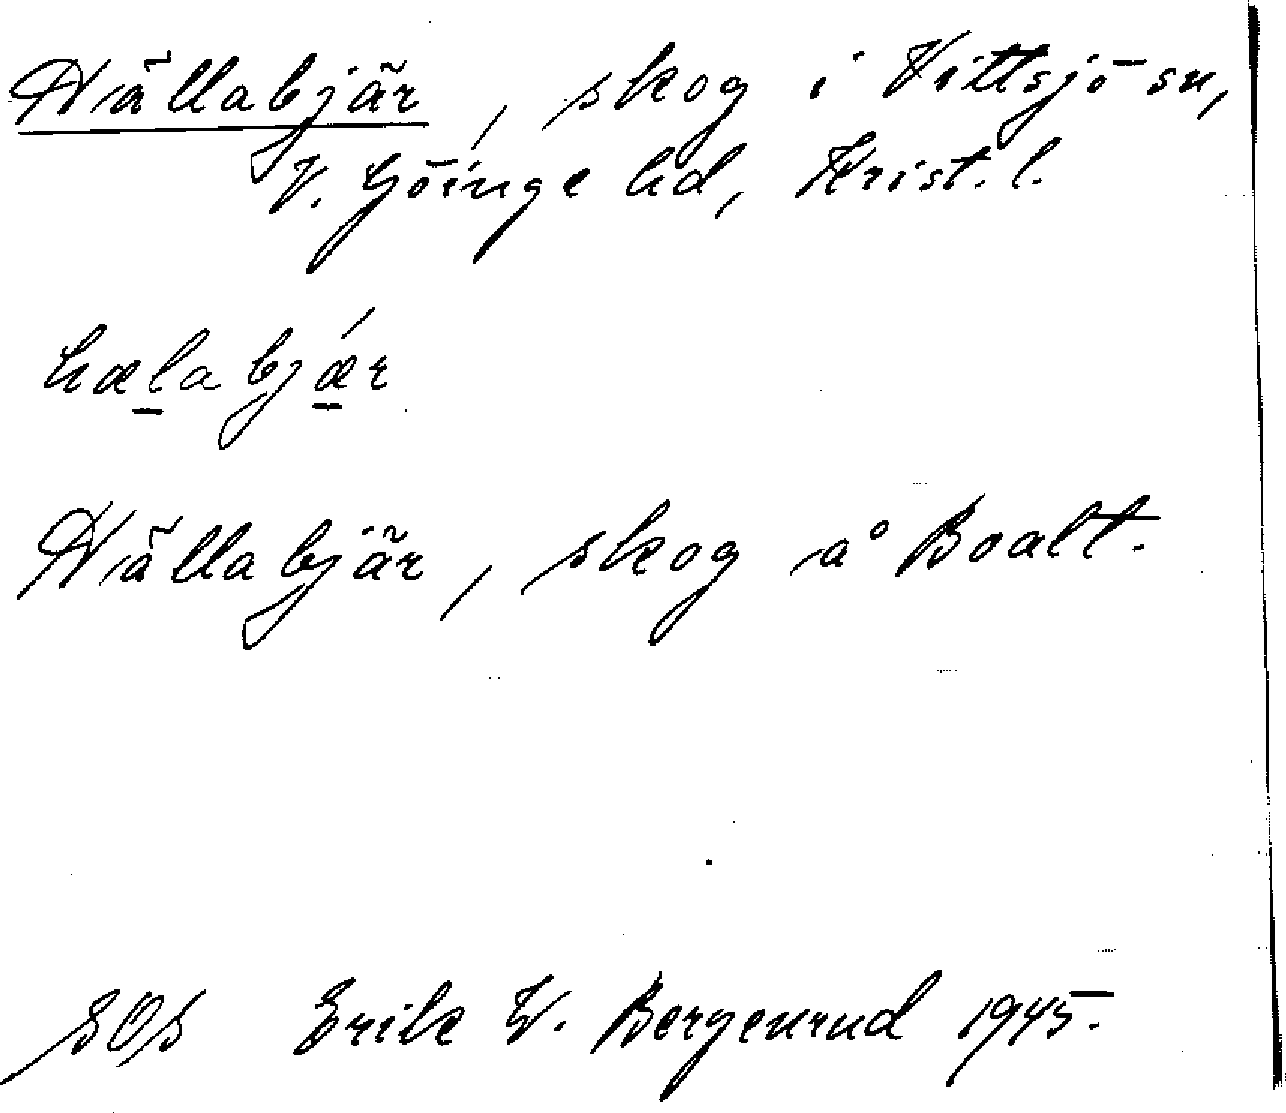 Hällabjär, skog i Vittsjö sn,
V. Göinge hd, Krist. l.
hælabjǽr
Hällabjär, skog å Boalt.
SOS Erik W. Bergenrud 1945.